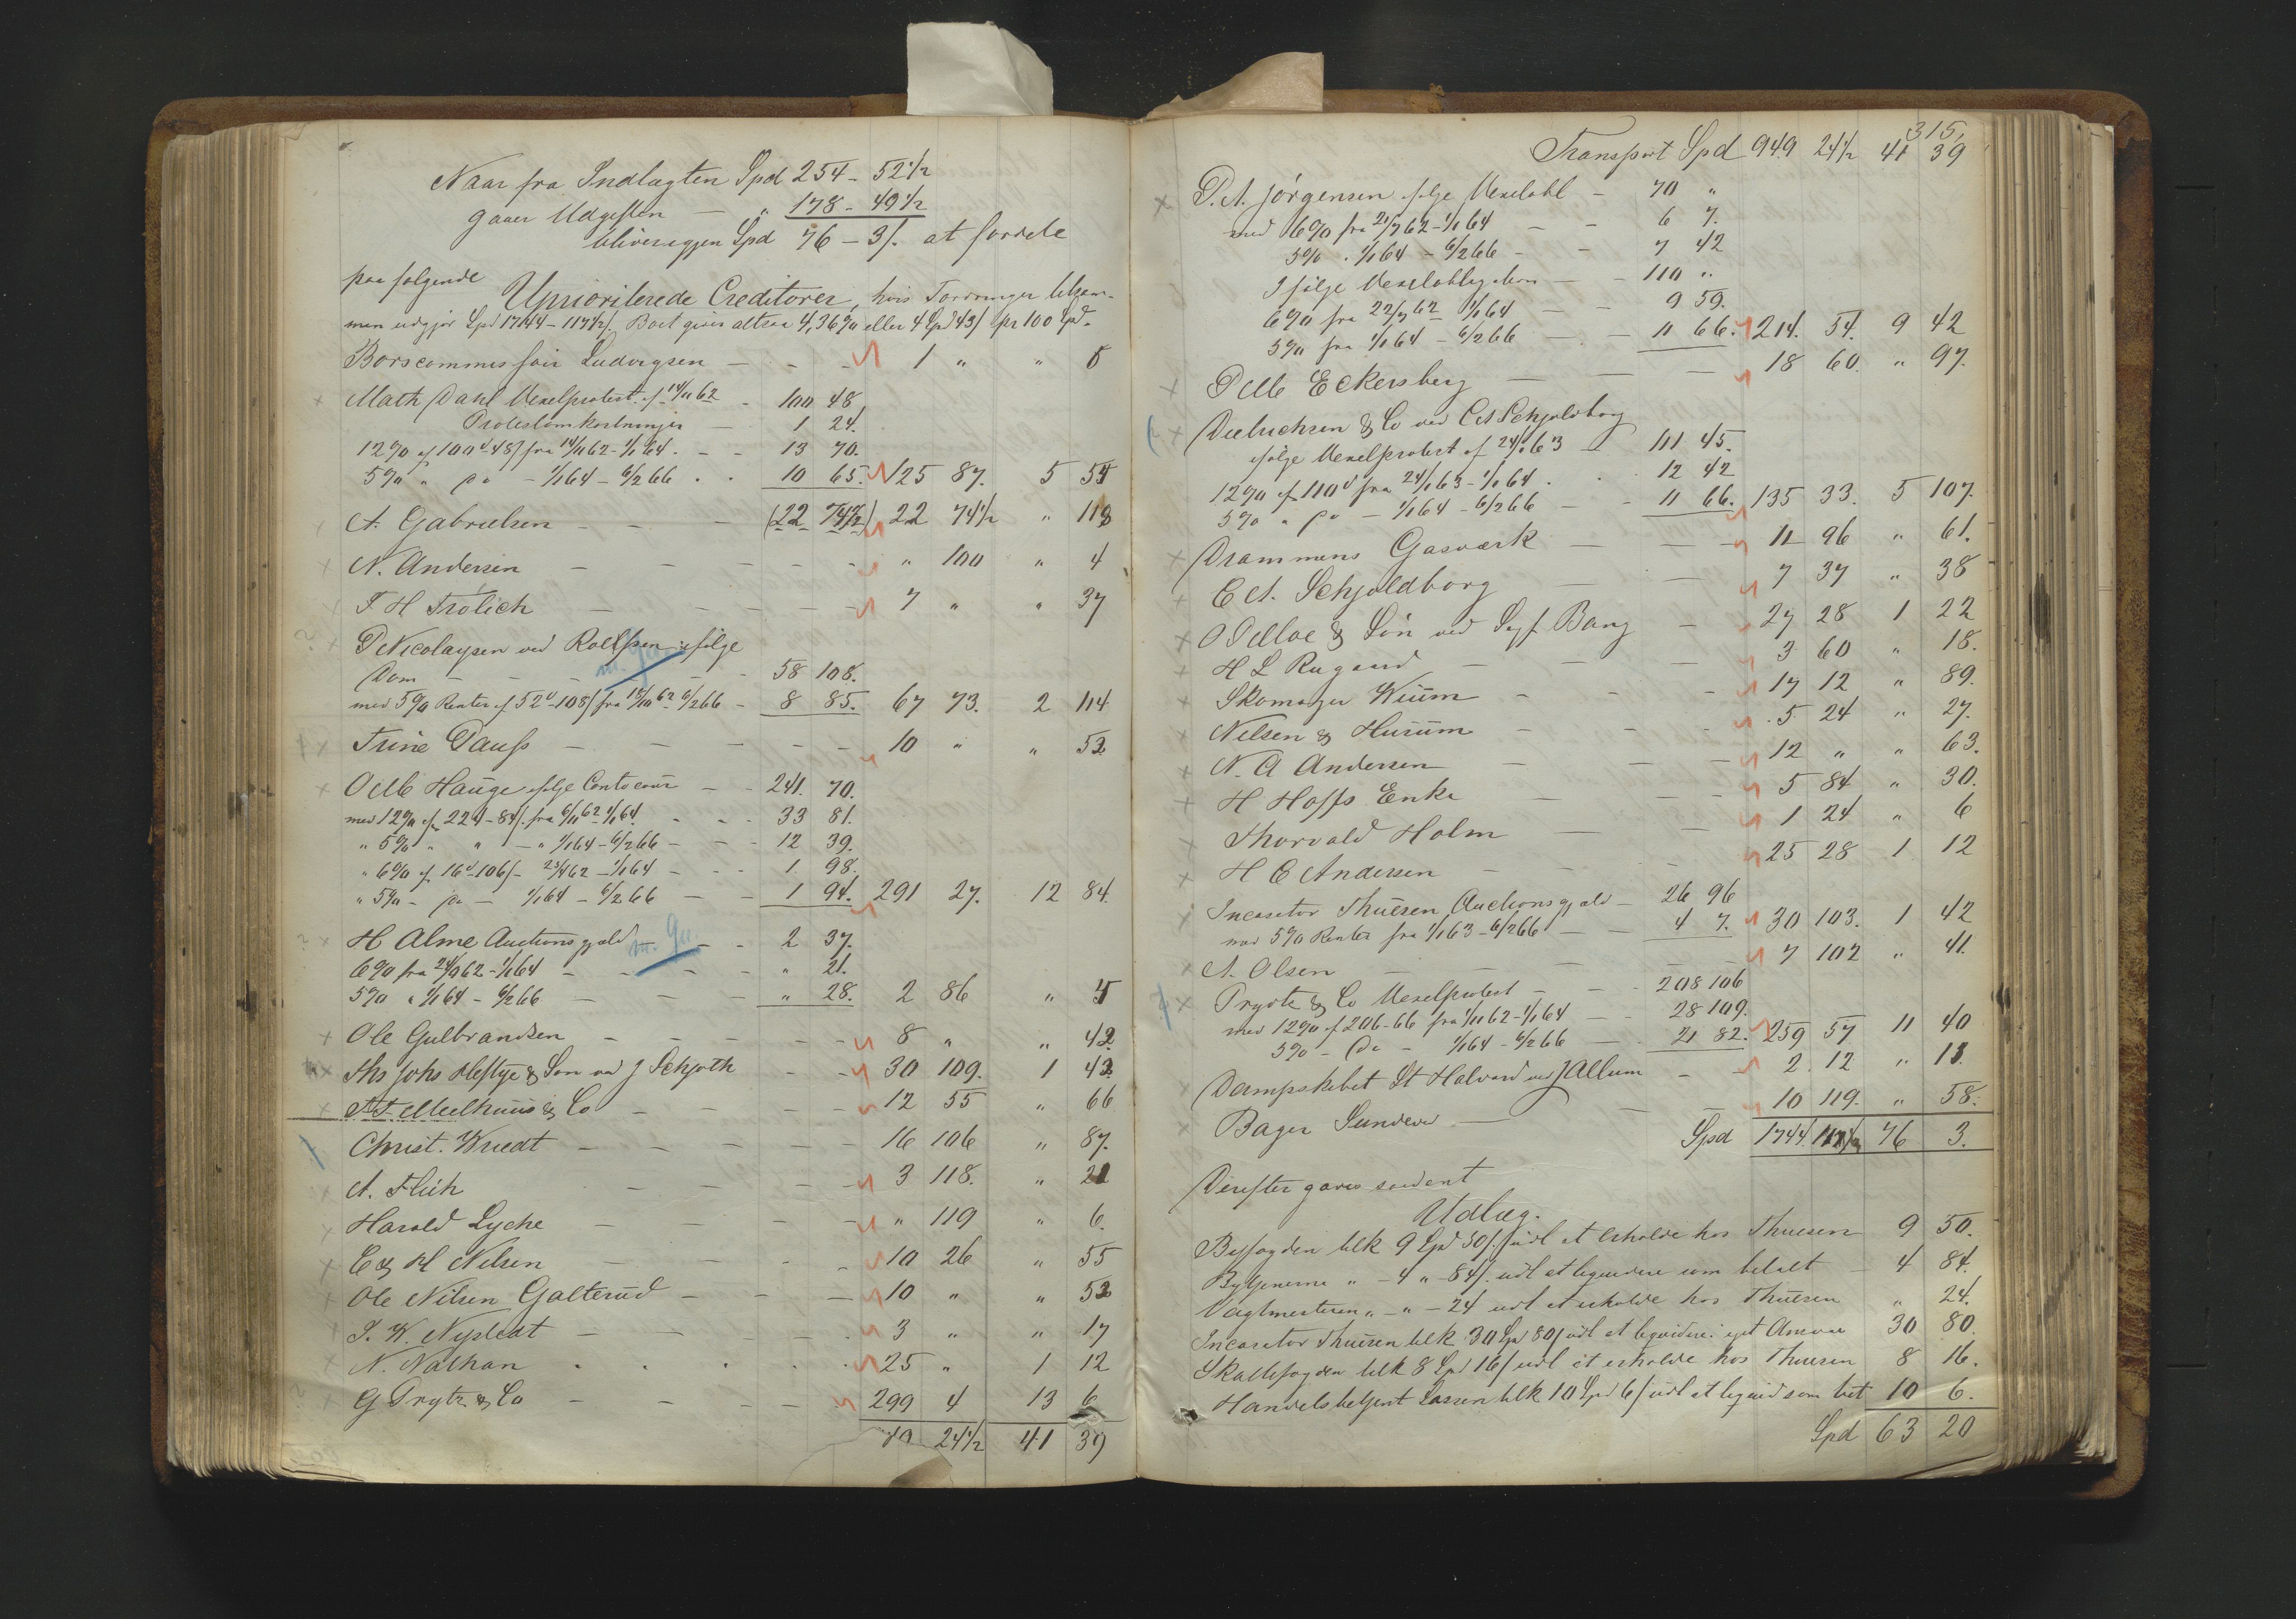 Naar fra Indtægten Spd 254 - 52 1/2
gaaer Udgiften — " 178 - 49 1/2
bliver igjen Spd 76 - 3/ at fordele
paa følgende
Uprioriterede Creditorer, hvis Fordringer tilsam-
men udgjør Spd 1744 - 117 1/2/. Boet giver altsaa 4,36% eller 4 Spd 43/ pr 100 Spd.
Ludvigsen — - - 1 " " 5
Math Dahl Vexelprotest af 14/11 62 - 100 48
Protestomkostninger — 1 24.
12% af 100d 48/ fra 14/11 62 - 1/1 64 . - - 13 70.
5% " do - 1/1 64 - 6/2 66 . . 10 65. 125 87. 5 55
A. Gabrielsen - - - (22 74 1/2) 22 74 1/2 " 118
N. Andersen — - - - - " 100 " 4
F. H Frölich — - - - - 7 " " 37
P Nicolaysen ved ifølge
m. Gu.
Dom - - - - - 58 108.
med 5% Renter af 52d-108/ fra 6/2 66 - 8 85. 67 73. 2 114
Trine Dauss - - - - - 10 " " 52
O Hauge ifølge Contocour - - 241. 70.
med 12% af 224-84/. fra 6/11 62 - 1/1 64. - - - 33 81.
" 5% " " - " 1/1 64 - 6/2 66 - - - 12 39.
" 6% af 16d-106/ - 1/1 64 - - - 1 98.
" 5% - do - 1/1 64 - 6/2 66 - - 1 94. 291 27. 12 84.
H Alme Auctionsgjæld - - 2 37.
m. Gu.
6% fra - 1/1 64 - - - - " 21.
5% " 1/1 64 - 6/2 66 - - - " 28. 2 86 " 5
Ole Gulbrandsen - - - - - 8 " " 42
Ths Johs Heftye & Søn ved J Schjøth - - 30 109. 1 43
& Co - - - - 12 55 " 66
Christ. Wriedt - - - - - 16 106 " 87.
A. - - - - 3 118. " 21
Harald Lyche - - - - " 119 " 6.
C & H Nilsen - - - - 10 26 " 55
Ole Nilsen Galterud - - - 10 " " 52
S. W. Nystedt - - - - 3 " " 17
N. Nathan . . . . . 25 " 1 12
G Prytz & Co - - - - - 299 4 13 6
24 1/2 41 39
315
Transport Spd 949 24 1/2 41 39
P. A. Jørgensen ifølge — 70 "
med 6% fra 62 - 1/1 64 - - 6 7.
5% . 1/1 64 - 6/2 66 - - 7 42
Ifølge Vexelobligation — - 110 "
6% fra 62 1/1 64 - - 9 59.
5% fra 1/1 64 - 6/2 66 - - 11 66. 214. 54. 9 42
Eckersberg - - - 18 60. " 97.
Diedrichsen & Co ved C A Schjoldborg
ifølge Vexelprotest af 24/1 63 - 111 45.
12% af 110d fra 24/1 63 - 1/1 64 . . 12 42
5% " do - 1/1 64 - 6/2 66 - - 11 66. 135 33. 5 107.
Drammens Gasværk - - - 11 96 " 61.
C A. Schjoldborg - - 7 37 " 38
O & Søn ved Bang - 27 28 1 22
H L - - - 3 60 " 18.
Skomager Wiium - - - 17 12 " 89.
Nilsen & Huruum - - - 5 24 " 27.
N. A Andersen - - - 12 " " 63.
H Hoffs Enke - - - 5 84 " 30.
Thorvald Holm - - 1 24 " 6
H C Andersen - - - 25 28 1 12
Incasator Thuesen Auctionsgjæld - 26 96
med 5% Renter fra 1/1 63 - 6/2 66 - - 4 7. 30 103. 1 42
A. Olsen - - - 7 102 " 41.
Prydtz & Co Vexelprotest - - 208 106
med 12% af 206-66 fra 62 - 1/1 64 - - 28 109.
5% - do - 1/1 64 - 6/2 66 - - 21 82. 259 57 11 40
Dampskibet St Halvard ved J Allum - - 2. 12 " 11.
Bager - - - 10 119. " 58.
Spd 1744. 117 1/2 76 3.
Derefter gjøres saadant
Udlæg.
Byfogden tilk 9 Spd 50/. udl at erholde hos Thuesen 9 50.
Bytjenerne " - 4 " - 84/. udl at liqvidere som betalt - 4 84.
Vagtmesteren " - " - 24 udl at erholde hos Thuesen " 24.
Incasator Thuesen tilk 30 Spd 80/ udl at liqvidere i eget Ansvar 30 80.
Skattefogden tilk 8 Spd 16/ udl at erholde hos Thuesen 8 16.
Handelsbetjent Larsen tilk 10 Spd 6/ udl at liqvid som bet 10 6.
Spd 63 20